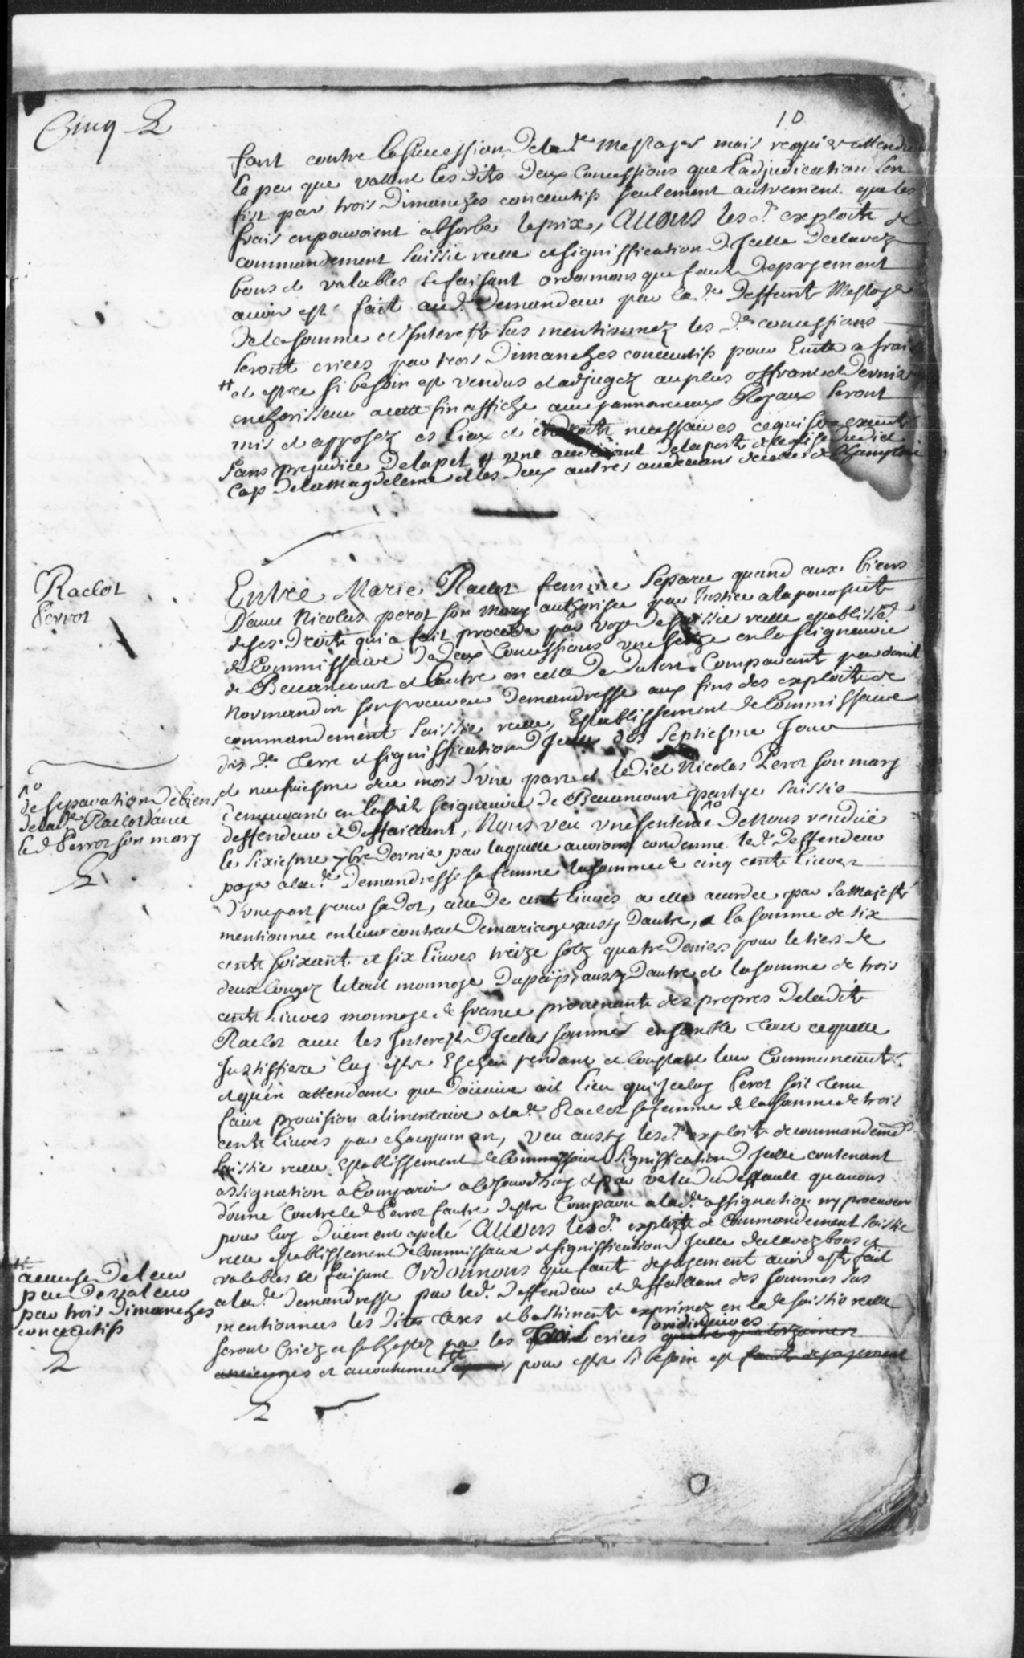 Cinq
10
font contre la succession de lad.e Messager mais requiert attendu
le peu que vallent les dits deux concessions que l'adjudication s'en
fist par trois dimanches concecutifs seulement autrement que les
frais en pouroient absorber le prix, Avons lesd. exploits de
commandement saisie reelle et signiffication d'Icelle declarez
bons et valables ce faisant ordonnons que faute de payement
avoir esté fait aud. demandeur par lad.e deffunte Messager
de la somme et Interests sus mentionnez les d. concessions
seront criees par trois dimanches concecutifs pour Ensuite
et estre si besoin est vendus et adjugez au plus offrant et dernier
encherisseur a cette fin affiches aux pannonceaux Royaux seront
mis et apposez es lieux et endroits necessaires ce qui sera executé
sans prejudice de lapel
Cap de la Magdeleine et les deux autres
Raclot
Perrot
Entre Marie Raclot femme separee quand aux biens
D'avec Nicolas perot son mary authorisee par Justice a la poursuitte
de ses droits qui a fait proceder par voye de saisie reelle establissem.t
de Commissaire de deux Concessions une seize en la seigneurie
de Becancourt et l'autre en celle de Dutort Comparante par daniel
Normandin son procureur demandresse aux fins des exploits de
commandement saisie reelle Establissement de Commissaire
des d. terre et signiffication d'Icelle des septiesme Jour
et neufiesme du mois d'une part et ledict Nicolas Perot son mary
S.ce
de separation de biens
de lad.e Raclot d'avec
led. Perrot son mary
demeurant en laditte seigneurie de Becancourt partye saissie
deffendeur et deffaillant, Nous veu une sentence de Nous rendüe
le sixiesme 7bre dernier par laquelle aurions condemné led. deffendeur
payer a lad.e demandresse sa femme la somme de cinq cents livres
d'une part pour sa dot, celle de cent livres a elle accordee par sa Majesté
mentionnee en leur contract de mariage aussy d'autre, et la somme de six
cents soixante et six livres treize solz quatre deniers pour le tiers de
deux mil livres monnoye du païs, aussy d'autre et la somme de trois
cents livres monnoye de france provenante des propres de la ditte
Raclot avec les Interests d'Icelles sommes ensemble tout ce quelle
Justiffiera luy estre Eschu pendant et constant leur Communauté
et qu'en attendant que doüaire ait lieu qu'Iceluy Perot soit tenu
faire provision alimentaire a lad.e Raclot sa femme de la somme de trois
cents livres par chacquun an, veu aussy lesd. exploits de commandem.t
saisie reelle establissement de Commissaire et signiffication d'Icelle contenant
assignation a Comparoir a ce Jourd'huy et par vertu du deffault qu'avons
donné Contre led. Perrot faute destre Comparu a lad. assignation ny procureur
pour luy düement apelé Avons lesd. exploits de Commandement saisie
reelle establissement de Commissaire et signiffication d'Icelle declarez bons et
valables ce faisant Ordonnons que faute de payement avoir esté fait
a lad.e demandresse par led. deffendeur et deffaillant des sommes sus
mentionnees les dits terres et bastiments exprimez en lad. saisie reelle
ordinaires
seront Criez et subhastez par les trois criees quatre quatorzaines
anciennes et accoutumees pour estre si besoin est faute de payement
a cause de leur
peu de valeur
par trois dimanches
concecutifs